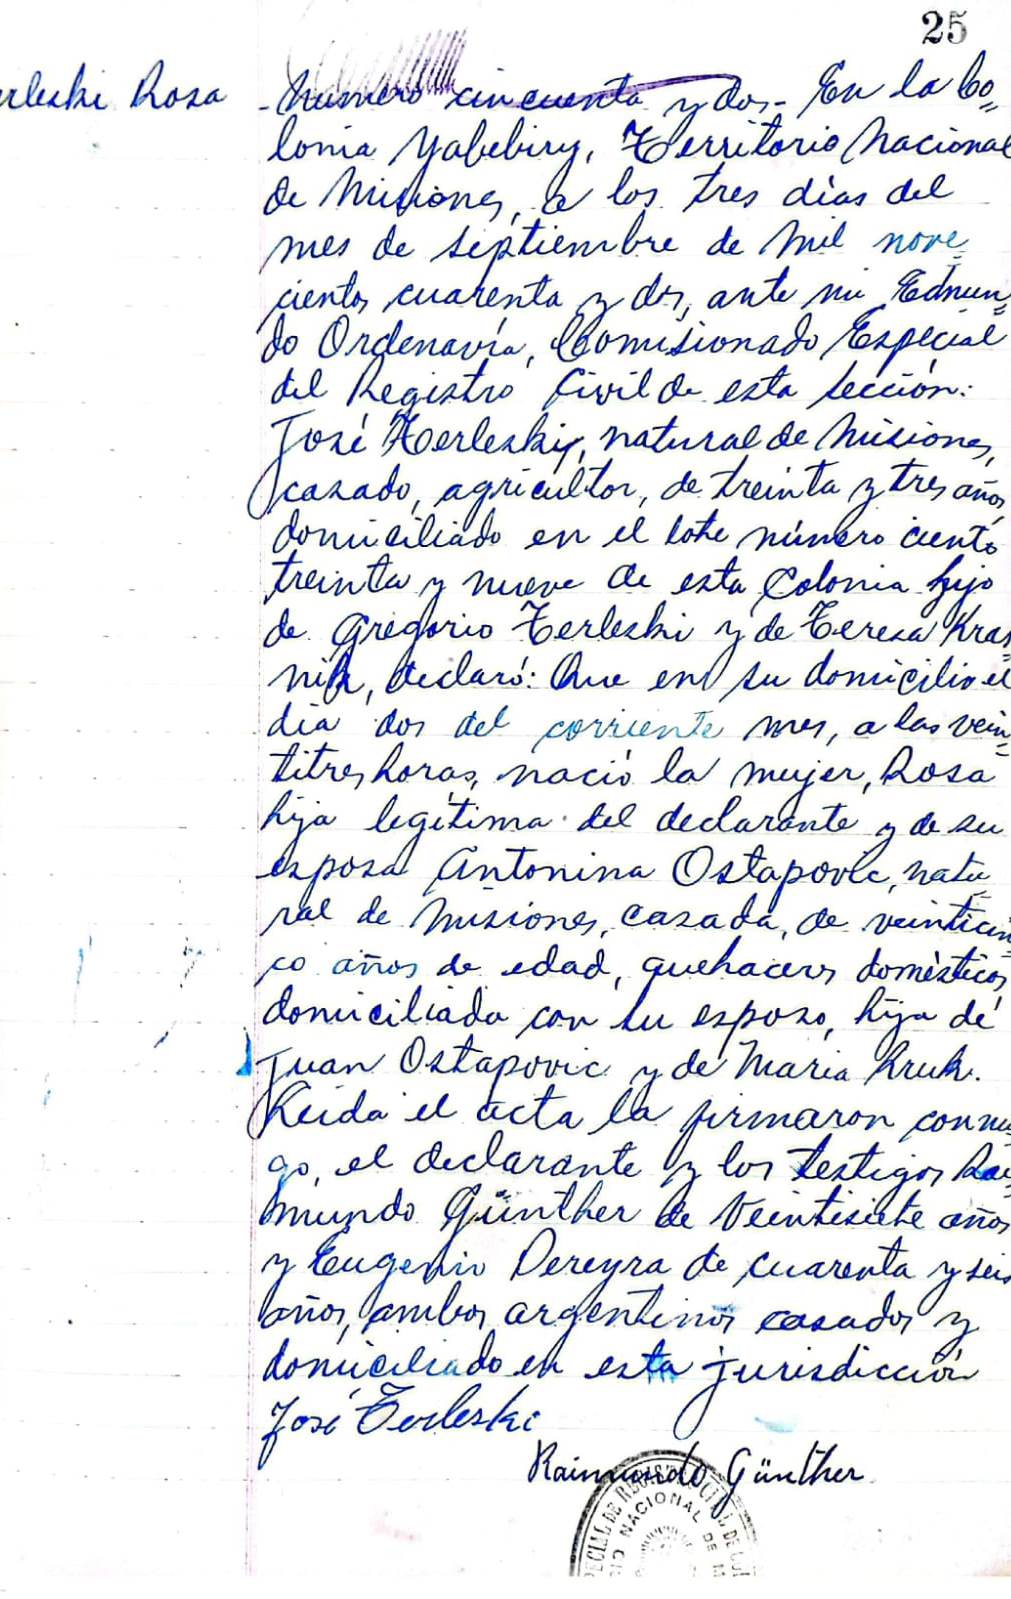 25
erleski Rosa
- Número cincuenta y dos - En la Co=
lonia Yabebiry, Territorio Nacional
de Misiones, a los tres días del
mes de septiembre de mil nove=
cientos cuarenta y dos, ante mi Edmun=
do Ordenavía, Comisionado Especial
del Registro Civil de esta sección:
José Terleski, natural de Misiones,
casado, agricultor, de treinta y tres años,
domiciliado en el lote número ciento
treinta y nueve de esta Colonia hijo
de Gregorio Terleski y de Teresa Kras=
nik, declaró: Que en su domicilio el
día dos del corriente mes, a las vein=
titres horas, nació la mujer, Rosa
hija legítima del declarante y de su
esposa Antonina Ostapovic, natu=
ral de Misiones, casada, de veinticin
co años de edad, quehaceres domésticos,
domiciliada con su esposo, hija de
Juan Ostapovic y de María Kruk.
Leida el acta la firmaron conmi
go, el declarante y los testigos Rai=
mundo Günther de veintisiete años
y Eugenio Pereyra de cuarenta y seis
años, ambos argentinos casados y
domiciliado en esta jurisdicción
José Terleski
Raimundo Günther
PECIAL DE REGISTRO CIVIL DE
IO NACIONAL DE M